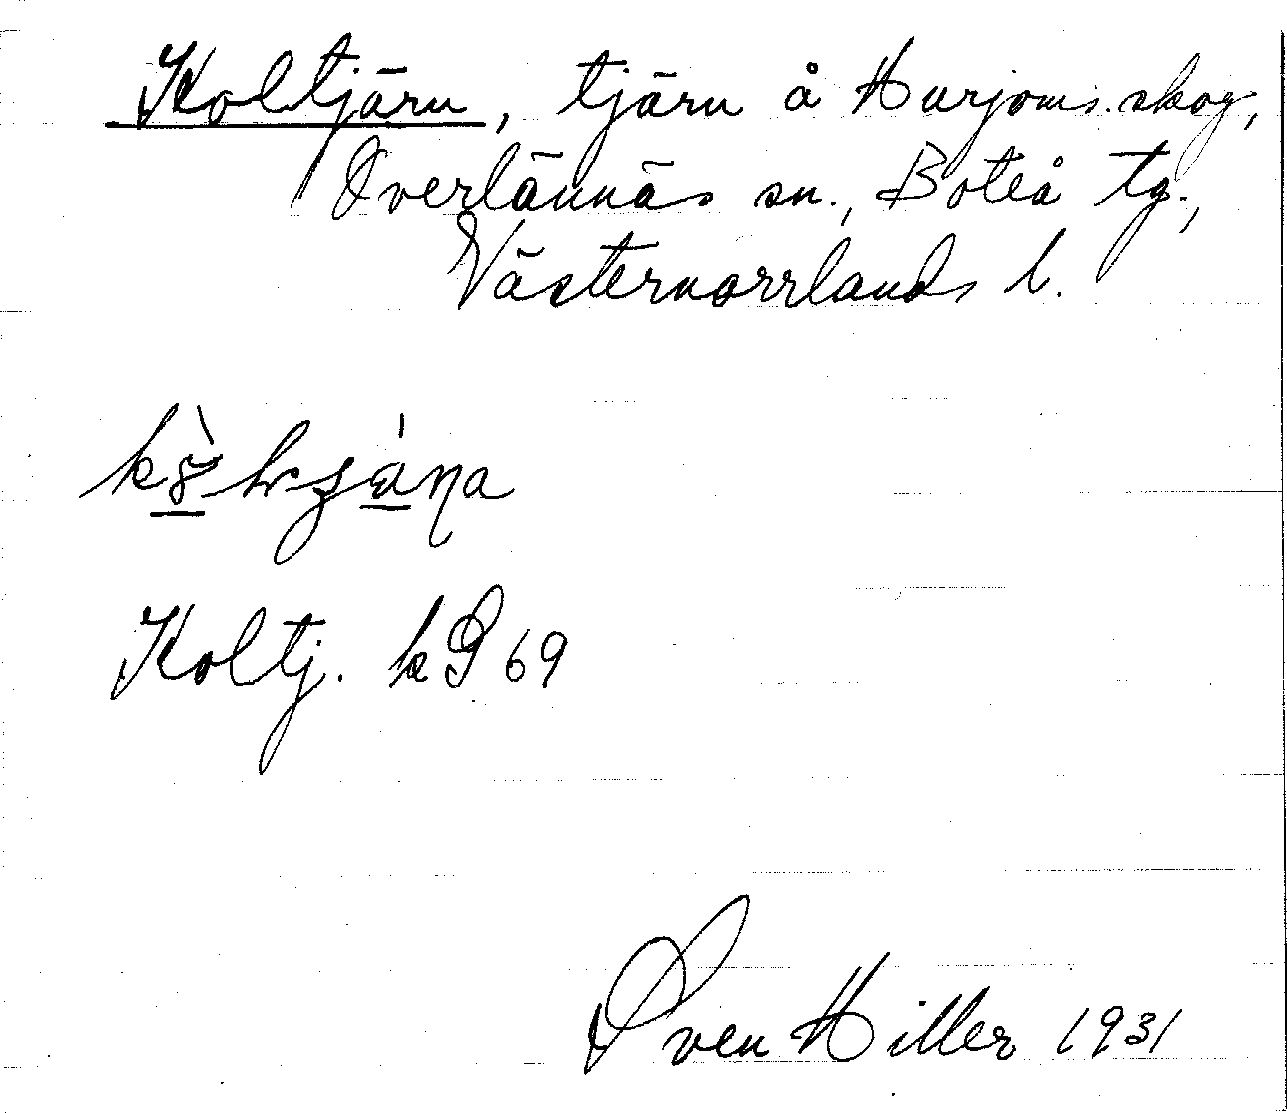 Koltjärn, tjärn å Hurjoms. skog,
Överlännäs sn., Boteå tg.,
Västernorrlands l.
Koltj. kS 69
Sven Hiller 1931